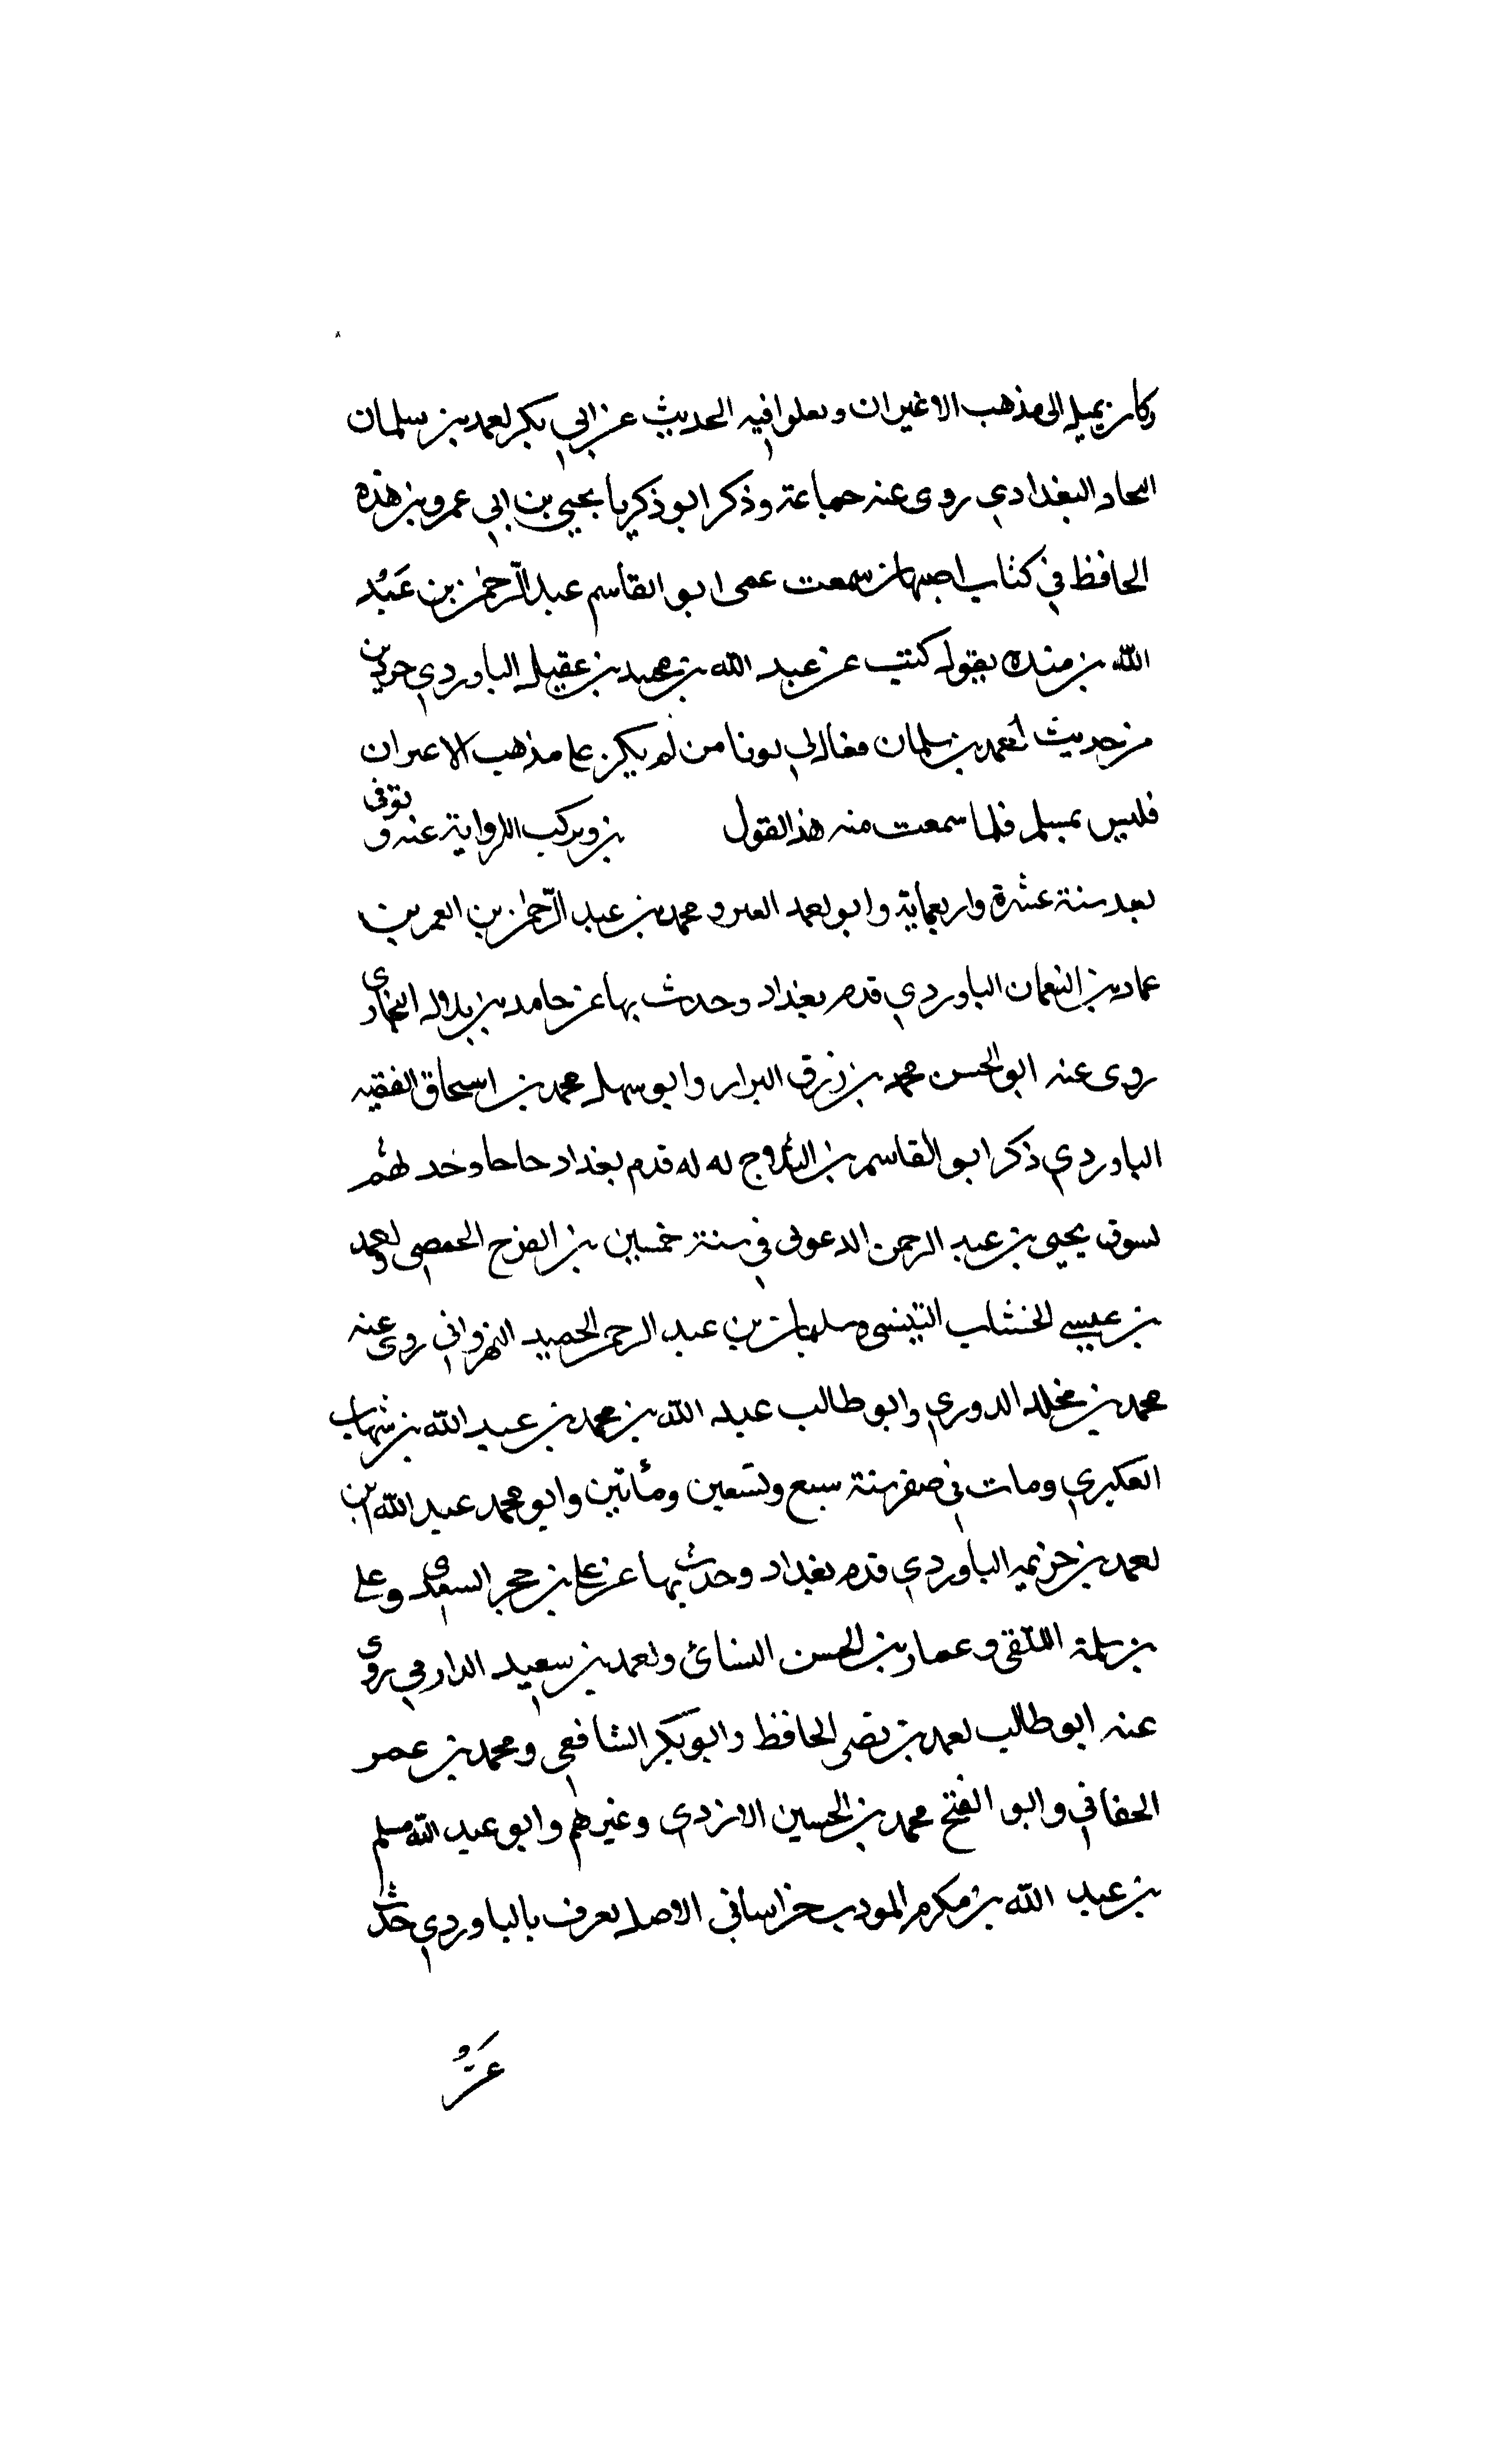 وكان يميل الى مذهب الاعيران و يعلوا فيه الحديث عن ابي بكر احمد بن سلمان
النجاد البغدادي روى عنه جماعة وذكر ابو ذكريا يحيى بن ابي عمرو بن هذه
الحافظ في كتاب اصبهان سمعت عمى ابو القاسم عبد الرحمن بن عَبْد
الله بن منده يقول كتبت عن عبد الله بن محمد بن عقيل الباوردي جزين
من حديث احمد بن سلمان فقال لي يونا من لم يكن على مذهب الاعيران
فليس بمسلم فلما سمعت منه هذا القول بن وبركب الرواية عنه و توفى
بعد سنة عشرة واربعماية وابو احمد العمرو محمد بن عبد الرحمن بن العمر بن
عماد بن النعمان الباوردي قدم بغداد وحدث بها عن حامد بن بلال البخاري
روى عنه ابو الحسن محمد بن زرق البزار وابو سهل محمد بن اسحاق الفقيه
الباوردي ذكر ابو القاسم بن الثلاج له له قدم بغداد حاجا وحد لهم
لسوق يحيى بن عبد الرحمن الدعولى في سنة خمسين بن الفرج الحمصي واحمد
بن عيسى الخشاب التنيسي وسلمان بن عبد الرحمن الحميد النهرواني روى عنه
محمد بن مخلد الدوري وابو طالب عبد الله بن محمد بن عبد الله بن شهاب
العكبري ومات في صفر سنة سبع وتسعين ومأتين وابو محمد عبد الله بن
احمد بن خزيمه الباوردي قدم بغداد وحدث بها عن علي بن حجر السعدى وعلي
بن سلمة اللبقى وعمار بن الحسن النسائ واحمد بن سعيد الدارمي روى
عنه ابو طالب احمد بن نصر الحافظ وابو بكر الشافعي ومحمد بن عمر
الجعاني وابو الفتح محمد بن الحسين الازدي وغيرهم وابو عبد الله مسلم
بن عبد الله بن مكرم المودب خراساني الاصل يعرف بالباوردي حدث
عَنْ